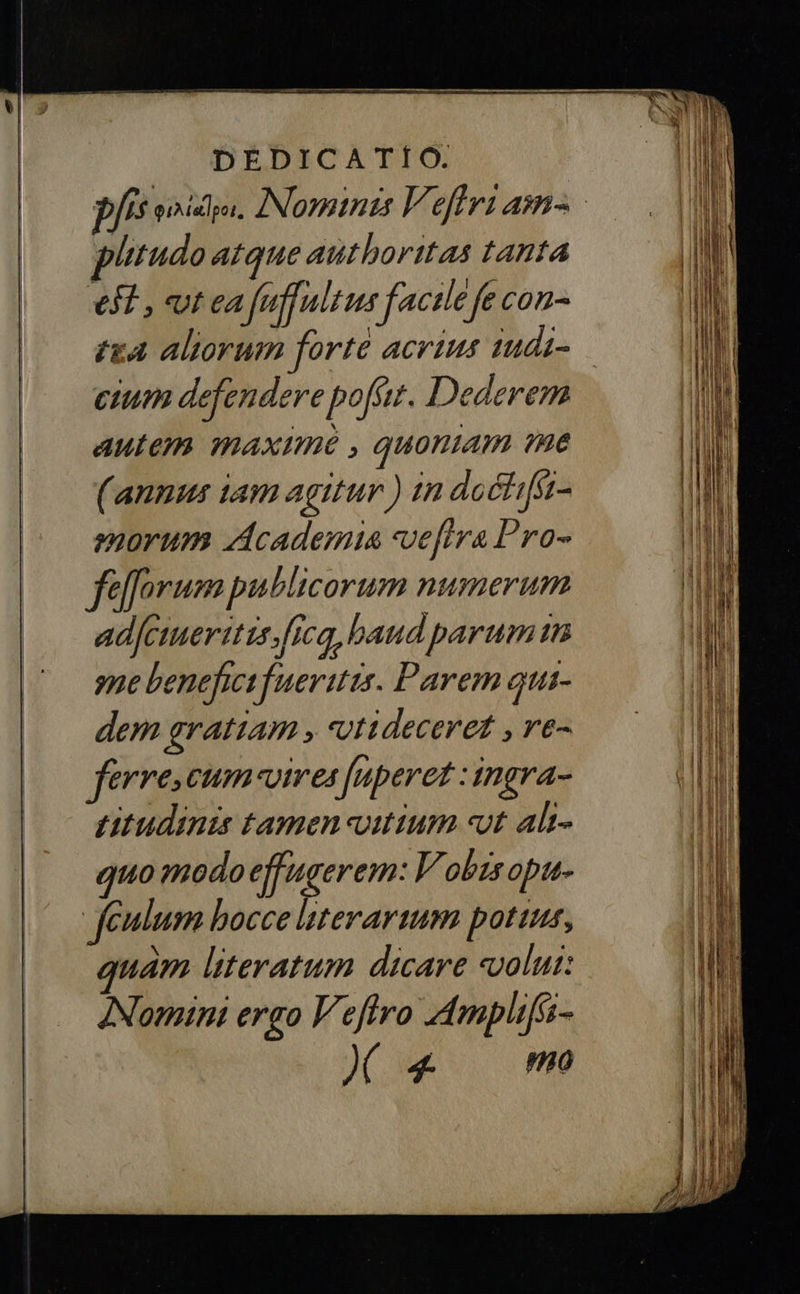 DEDICATIO.
pſis φιλίαlροι. Nominis Veſtri am-
plitudo atque authoritas tanta
eſt, vt ea ſuffultus facilè ſe con-
tra aliorum fortè acrius iudi-
cium defendere poſsit. Dederem
autem maximè, quoniam me
(annus iam agitur) in doctiſsi-
morum Academiæ veſtræ Pro-
feſſorum publicorum numerum
adſciueritis, ſicq, haud parum in
me benefici fueritis. Parem qui-
dem gratiam, vti deceret, re-
ferre, cum vires ſuperet: ingra-
titudinis tamen vitium vt ali-
quo modo effugerem: Vobis opu-
ſculum hocce literarium potius,
quàm literatum dicare volui:
Nomini ergo Veſtro Ampliſsi-
)( 4 mo